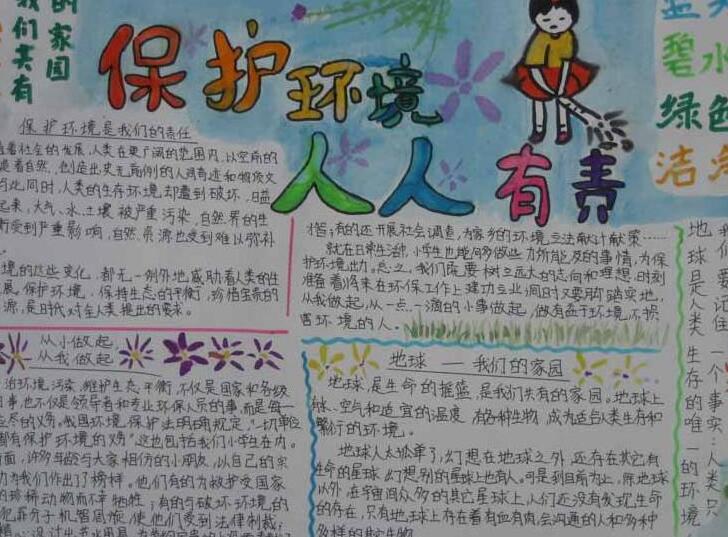 的家园
我们共有
保护环境
人人有责
碧水
绿色
洁净
保护环境是我们的责任
着社会的发展,人类在更广阔的范围内,以空前的
造着自然,创造出史无前例的人间奇迹和物质文
与此同时,人类的生存环境却遭到破坏,日益
起来,大气、水、土壤被严重污染,自然界的生
衡受到严重影响,自然资源也受到难以弥补
境的这些变化,都无一例外地威胁着人类的生
展。保护环境,保持生态的平衡,珍惜宝贵的
源,是时代对全人类提出的要求。
从小做起,
从我做起
治环境污染,维护生态平衡,不仅是国家和各级
事,也不仅是领导者和专业环保人员的事,而是每一
应尽的义务。我国环境保护法明确规定,“一切单位
都有保护环境的义务”这也包括我们小学生在内。
面,许多年龄与大家相仿的小朋友,以自己的实
力为我们作出了榜样。他们有的为救护受国家
的珍稀动物而不幸牺牲;有的与破坏环境的
犯罪分子机智周旋,使他们受到法律制裁;
有的还开展社会调查,为家乡的环境立法献计献策……
就在日常生活中,小学生也能够多做些力所能及的事情,为保
护环境出力。总之,我们既要树立远大的志向和理想,时刻
准备着将来在环保工作上建功立业,同时又要脚踏实地,
从我做起,从一点一滴的小事做起,做有益于环境,不损
害环境的人。
地球——我们的家园
地球,是生命的摇篮,是我们共有的家园。地球上
水、空气和适宜的温度,有各种生物,成为适合人类生存和
繁衍的环境。
地球人太孤单了,幻想在地球之外,还存在其它有
生命的星球,幻想别的星球上也有人。可是到目前为止,除地球
以外,在宇宙间众多的其它星球上,人们还没有发现生命
的存在,只有地球上存在着有血有肉,会沟通的人和多种
多样的动植物
地球是人类生存的唯一的环境
我们要记住一个事实:人类只